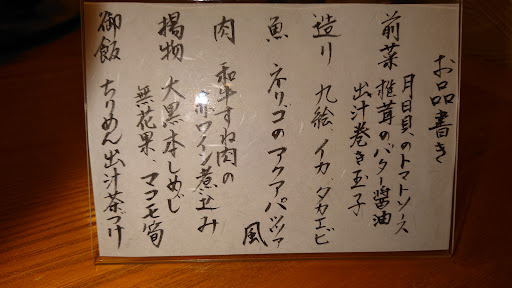 お品書き
前菜 月日貝のトマトソース
椎茸のバター醤油
出汁巻き玉子
造り 九絵、イカ、タカエビ
魚 ネリゴのアクアパッツァ風
肉 和牛すね肉の
赤ワイン煮込み
揚物 大黒本しめじ
無花果、マコモ筍
御飯 ちりめん出汁茶づけ